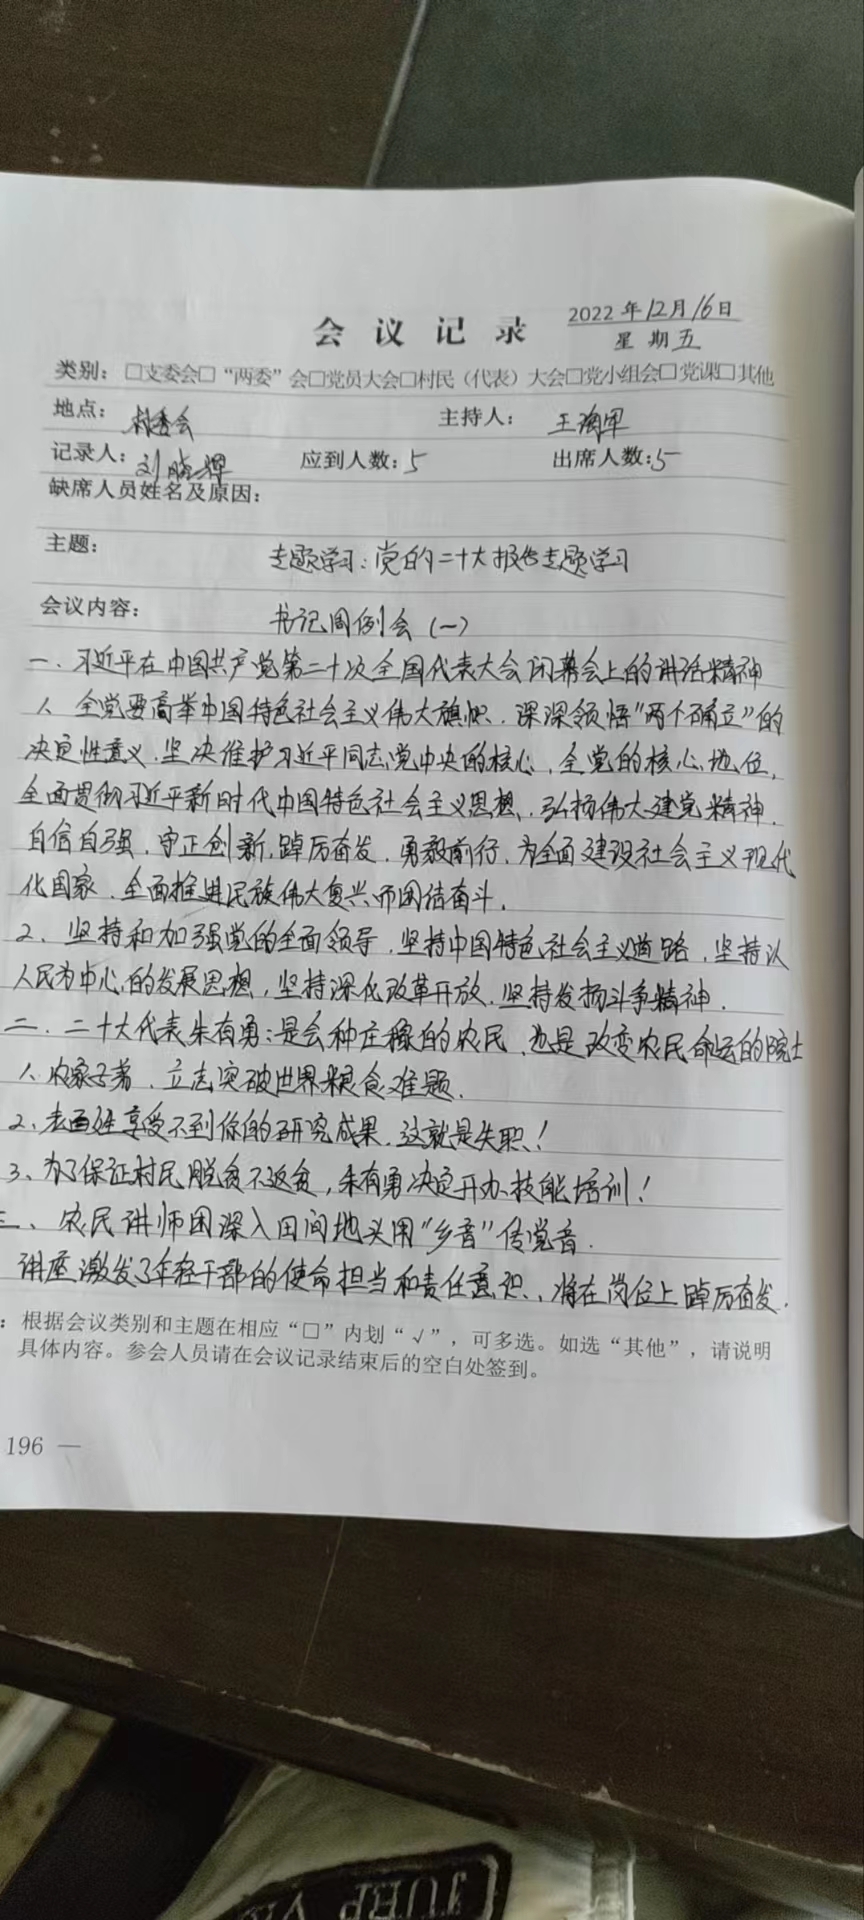 会议记录
2022年12月16日
星期五
类别：□支委会□“两委”会□党员大会□村民（代表）大会□党小组会□党课□其他
地点：村委会 主持人：王海军
记录人：刘晓辉 应到人数：5 出席人数：5
缺席人员姓名及原因：
主题：专题学习：党的二十大报告专题学习
会议内容：书记周例会（一）
一、习近平在中国共产党第二十次全国代表大会闭幕会上的讲话精神
1、全党要高举中国特色社会主义伟大旗帜，深深领悟“两个确立”的
决定性意义，坚决维护习近平同志党中央的核心，全党的核心地位，
全面贯彻习近平新时代中国特色社会主义思想，弘扬伟大建党精神，
自信自强，守正创新，踔厉奋发，勇毅前行，为全面建设社会主义现代
化国家，全面推进民族伟大复兴而团结奋斗．
2、坚持和加强党的全面领导，坚持中国特色社会主义道路，坚持以
人民为中心的发展思想，坚持深化改革开放，坚持发扬斗争精神．
二、二十大代表朱有勇：是会种庄稼的农民，也是改变农民命运的院士
1、农家子弟，立志突破世界粮食难题．
2、老百姓享受不到你的研究成果，这就是失职！
3、为了保证村民脱贫不返贫，朱有勇决定开办技能培训！
三、农民讲师团深入田间地头用“乡音”传党音．
讲座激发了年轻干部的使命担当和责任意识，将在岗位上踔厉奋发．
：根据会议类别和主题在相应“□”内划“√”，可多选。如选“其他”，请说明
具体内容。参会人员请在会议记录结束后的空白处签到。
196 —